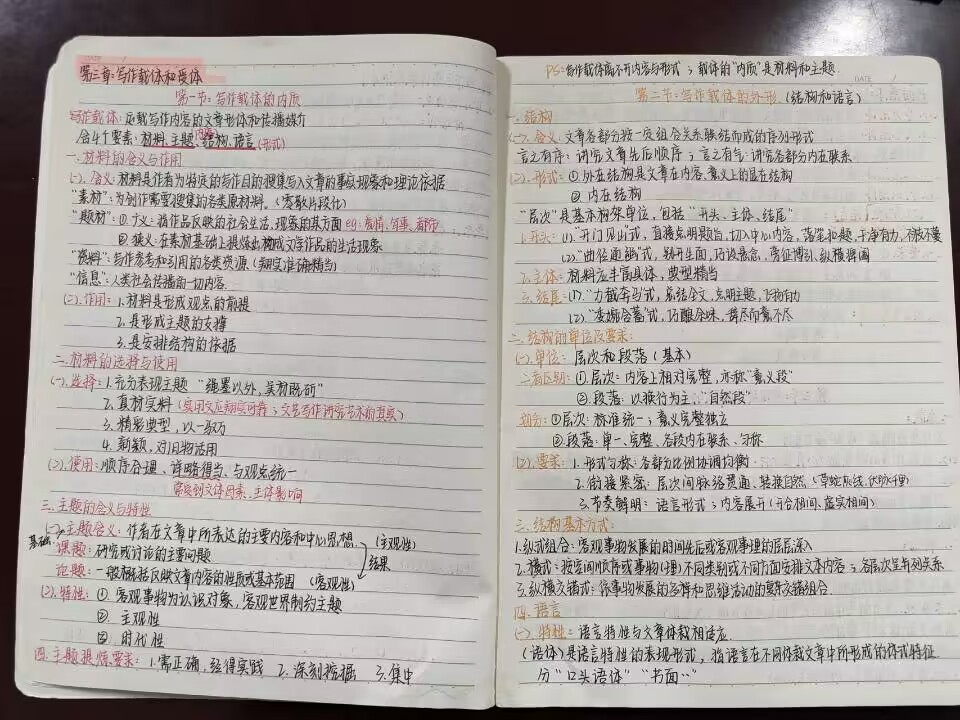 第三章:写作载体和受体
第一节:写作载体的内质
写作载体:反载写作内容的文章形体和传播媒介
含4个要素:材料、主题、结构、语言(形式)
内容
一.材料的含义与作用
(一).含义:材料是作者为特定的写作目的搜集写入文章的事实现象和理论依据
"素材":为创作需要搜集的各类原材料.(零散片段化)
"题材":①广义:指作品反映的社会生活,现象的某方面 eg:爱情、军事、都市
②狭义:在素材基础上提炼出构成文学作品的生活现象
"资料":写作参考和引用的各类资源(翔实准确精当)
"信息":人类社会传播的一切内容.
(二).作用:1.材料是形成观点的前提
2.是形成主题的支撑
3.是安排结构的依据
二.材料的选择与使用
(一).选择:1.充分表现主题 "绳墨以外,美材既斫"
2.真材实料(实用文应翔实可靠;文学写作讲究艺术的真实)
3.精彩典型,以一驭万
4.新颖,对旧物活用
(二).使用:顺序合理、详略得当、与观点统一
常受到文体因素、主体影响
三.主题的含义与特性
(一).主题含义:作者在文章中所表达的主要内容和中心思想 (主观性)
基础
课题:研究或讨论的主要问题
结果
论题:一般概括反映文章内容的性质或基本范围 (客观性)
(二).特性:①客观事物为认识对象,客观世界制约主题
②.主观性
③.时代性
四.主题提炼要求:1.需正确,经得实践 2.深刻挖掘 3.集中
PS:写作载体离不开内容与形式;载体的"内质"是材料和主题.
DATE
第二节:写作载体的外形.(结构和语言)
一.结构
(一).含义:文章各部分按一定组合关系联结而成的序列形式
言之有序:讲究文章先后顺序;言之有气:讲究各部分内在联系
(二).形式:①外在结构是文章在内容、意义上的显在结构
②内在结构
"层次"是基本构外单位,包括"开头、主体、结尾"
1.开头:(1)."开门见山"式,直接点明题旨,切入中心内容,落笔扣题,干净有力,不枝不蔓
(2)."曲径通幽"式,别开生面,巧设悬念,旁征博引,纵横捭阖
2.主体:材料应丰富具体,典型精当
3.结尾:(1)."力截奔马"式,总结全文,点明主题,飞扬有力
(2)."卒章含蓄"式,巧酿余味,辞尽而意不尽
二.结构的单位及要求:
(一).单位:层次和段落(基本)
二者区别:①层次:内容上相对完整,亦称"意义段"
②段落:以换行为主:"自然段"
划分:①层次:标准统一;意义完整独立
②段落:单一、完整、各段内在联系、匀称
(二).要求:1.形式匀称:各部分比例协调均衡
2.衔接紧密:层次间脉络贯通,转换自然.(草蛇灰线,伏脉千里)
3.节奏鲜明:语言形式;内容展开(开合相间,虚实相间)
三.结构基本方式:
1.纵式组合:客观事物发展的时间先后或客观事理的层层深入
2.横式:按空间顺序或事物(理)不同类别或不同方面安排文本内容;各层次呈并列关系
3.纵横交错式:依事物发展的多样和思维活动的繁杂交错组合.
四.语言
(一).特性:语言特性与文章体裁相适应.
(语体)是语言特性的表现形式,指语言在不同体裁文章中所形成的体式特征
分"口头语体" "书面…"